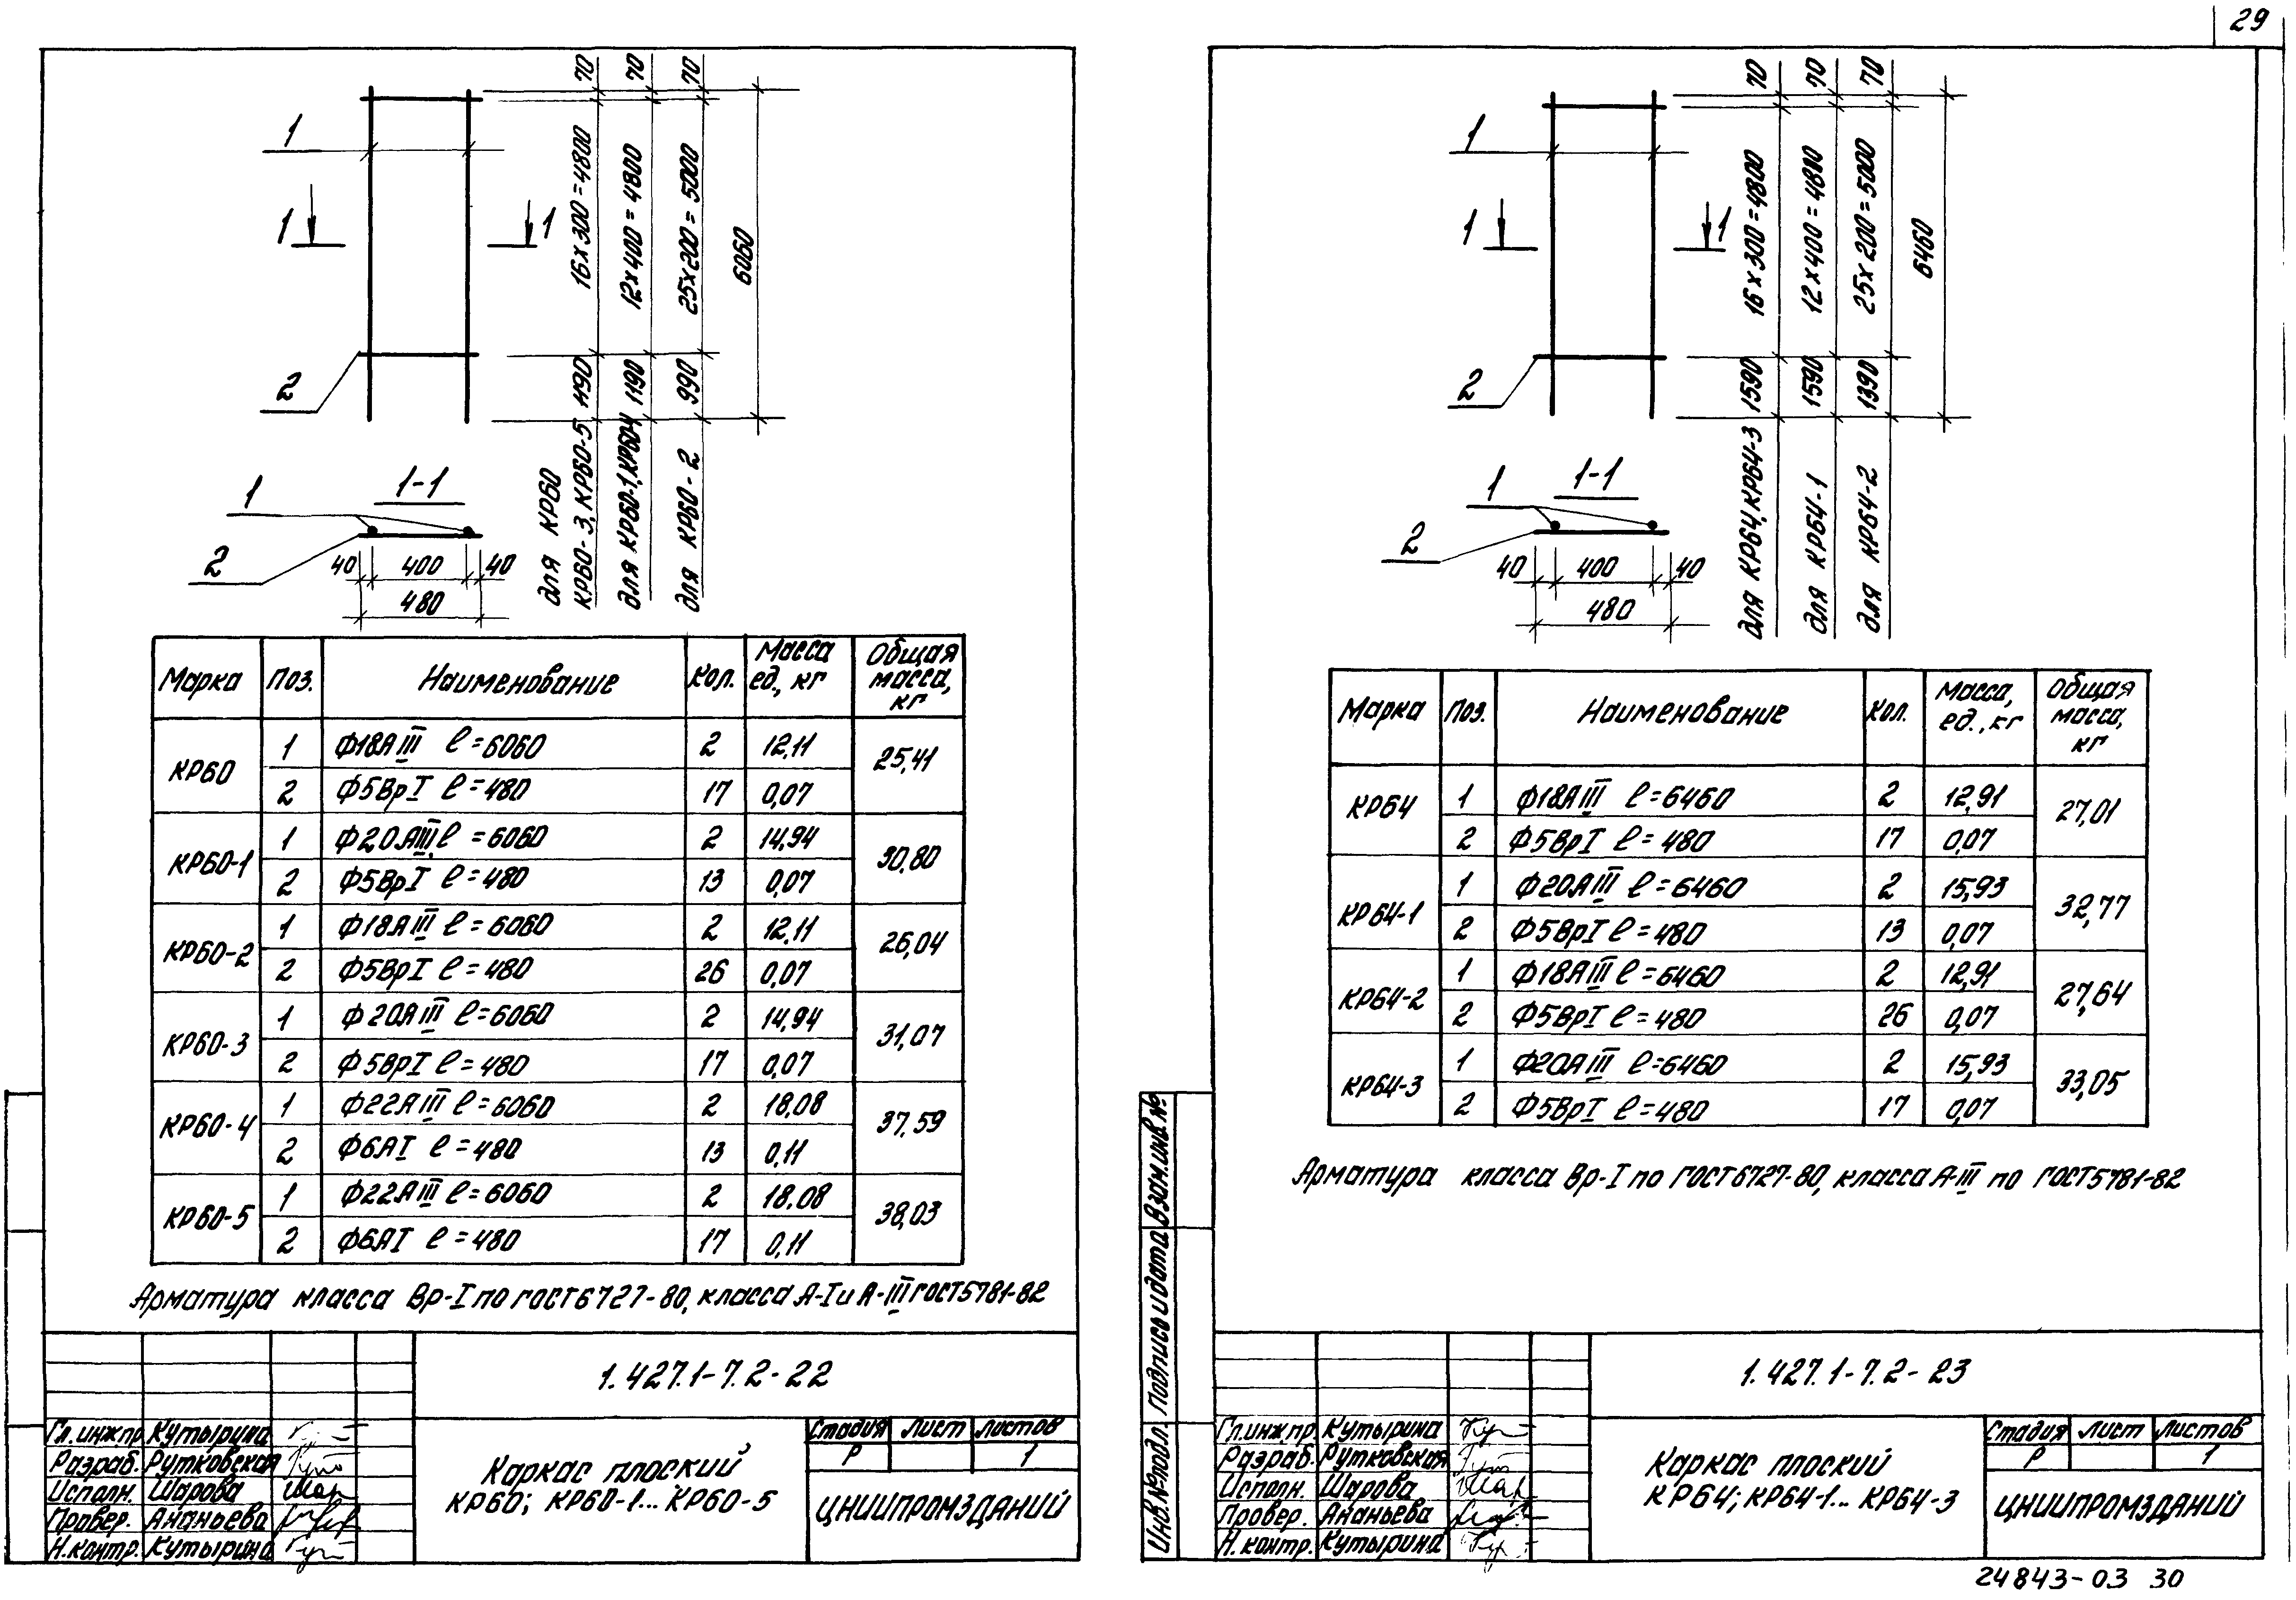 29
70
70
70
16х300=4800
12х400=4800
25х200=5000
6060
1190
1190
990
для КР60
КР60-3, КР60-5
для КР60-1, КР60-4
для КР60-2
1
1
1
2
1-1
1
2
40 400 40
480
Марка Поз. Наименование Кол. Масса ед., кг Общая масса, кг
КР60 1 Ф18АIII ℓ=6060 2 12,11 25,41
2 Ф5ВрI ℓ=480 17 0,07
КР60-1 1 Ф20АIII ℓ=6060 2 14,94 30,80
2 Ф5ВрI ℓ=480 13 0,07
КР60-2 1 Ф18АIII ℓ=6060 2 12,11 26,04
2 Ф5ВрI ℓ=480 26 0,07
КР60-3 1 Ф20АIII ℓ=6060 2 14,94 31,07
2 Ф5ВрI ℓ=480 17 0,07
КР60-4 1 Ф22АIII ℓ=6060 2 18,08 37,59
2 Ф6АI ℓ=480 13 0,11
КР60-5 1 Ф22АIII ℓ=6060 2 18,08 38,03
2 Ф6АI ℓ=480 17 0,11
Арматура класса Вр-I по ГОСТ 6727-80, класса А-I и А-III ГОСТ 5781-82
1.427.1-7.2-22
Гл.инж.пр. Кутырина
Разраб. Рутковская
Исполн. Шарова
Провер. Ананьева
Н.контр. Кутырина
Каркас плоский
КР60; КР60-1... КР60-5
Стадия Лист Листов
Р 1
ЦНИИПРОМЗДАНИЙ
70
70
70
16х300=4800
12х400=4800
25х200=5000
6460
1590
1590
1390
для КР64, КР64-3
для КР64-1
для КР64-2
1
1
1
2
1-1
1
2
40 400 40
480
Марка Поз. Наименование Кол. Масса, ед., кг Общая масса, кг
КР64 1 Ф18АIII ℓ=6460 2 12,91 27,01
2 Ф5ВрI ℓ=480 17 0,07
КР64-1 1 Ф20АIII ℓ=6460 2 15,93 32,77
2 Ф5ВрI ℓ=480 13 0,07
КР64-2 1 Ф18АIII ℓ=6460 2 12,91 27,64
2 Ф5ВрI ℓ=480 26 0,07
КР64-3 1 Ф20АIII ℓ=6460 2 15,93 33,05
2 Ф5ВрI ℓ=480 17 0,07
Арматура класса Вр-I по ГОСТ 6727-80, класса А-III по ГОСТ 5781-82
Инв.№ подл. Подпись и дата Взам.инв.№
1.427.1-7.2-23
Гл.инж.пр. Кутырина
Разраб. Рутковская
Исполн. Шарова
Провер. Ананьева
Н.контр. Кутырина
Каркас плоский
КР64; КР64-1... КР64-3
Стадия Лист Листов
Р 1
ЦНИИПРОМЗДАНИЙ
24843-03 30